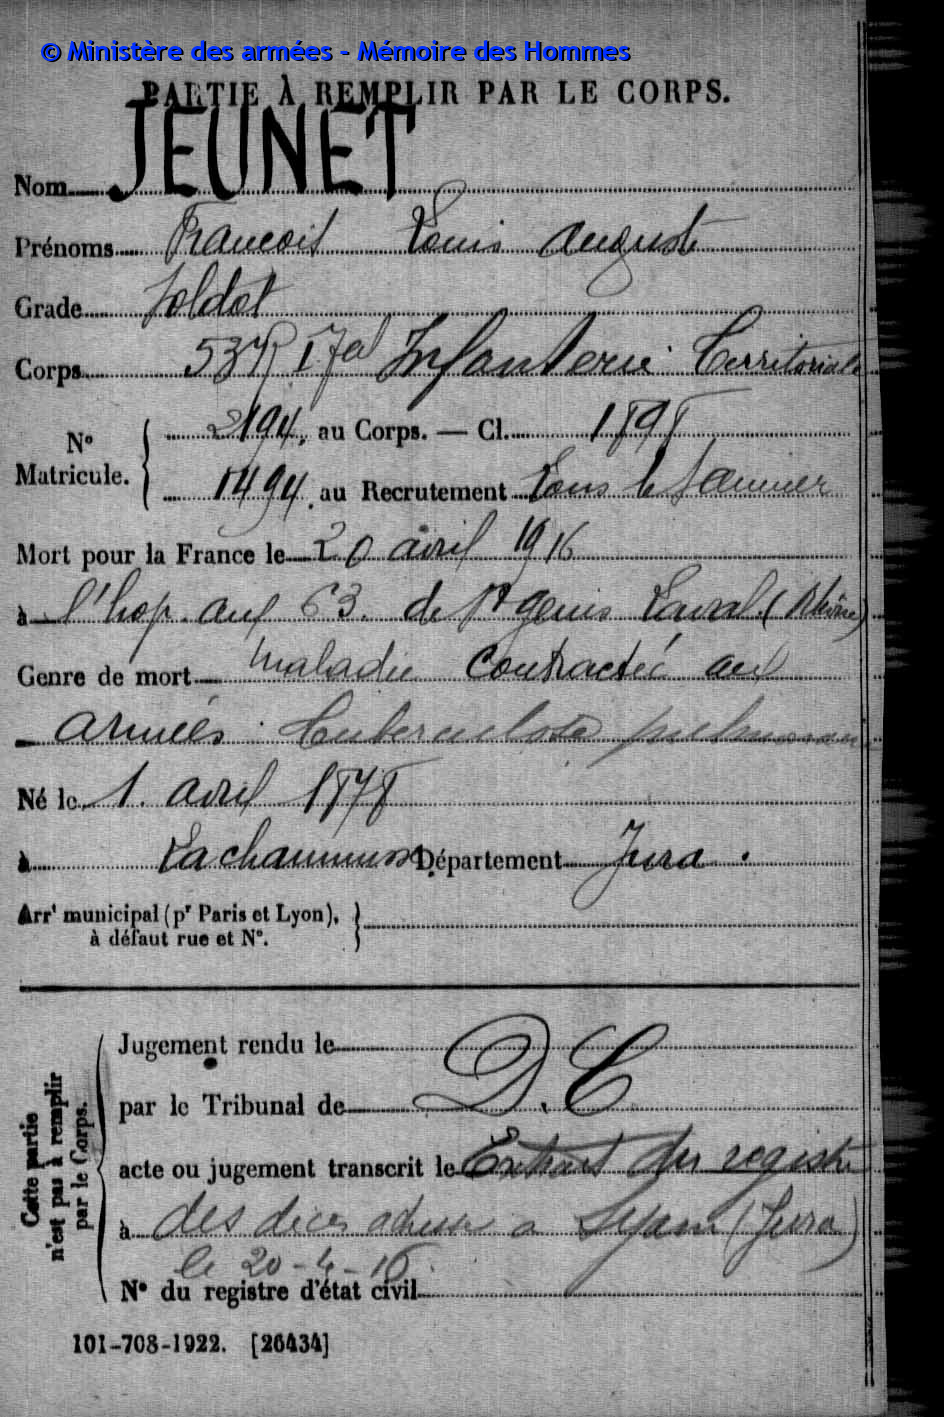 © Ministère des armées - Mémoire des Hommes
PARTIE À REMPLIR PAR LE CORPS.
Nom JEUNET
Prénoms Francois Louis Auguste
Grade Soldat
Corps 53 Infanterie Territoriale
2194. au Corps. — Cl. 1898
N°
Matricule.
1494. au Recrutement Lons le Saunier
Mort pour la France le 20 avril 1916
à l'hop. aux 63. de St Genis Laval (Rhône)
Genre de mort maladie contractée aux
armées Tuberculose pulmonaire
Né le 1. avril 1878
à Lachaumusse Département Jura.
Arrt municipal (pr Paris et Lyon),
à défaut rue et N°.
Cette partie
n'est pas à remplir
par le Corps.
Jugement rendu le D.C
par le Tribunal de
acte ou jugement transcrit le Extrait du registre
à des décès adressé a Syam (Jura)
le 20-4-16.
N° du registre d'état civil
101-708-1922. [26434]